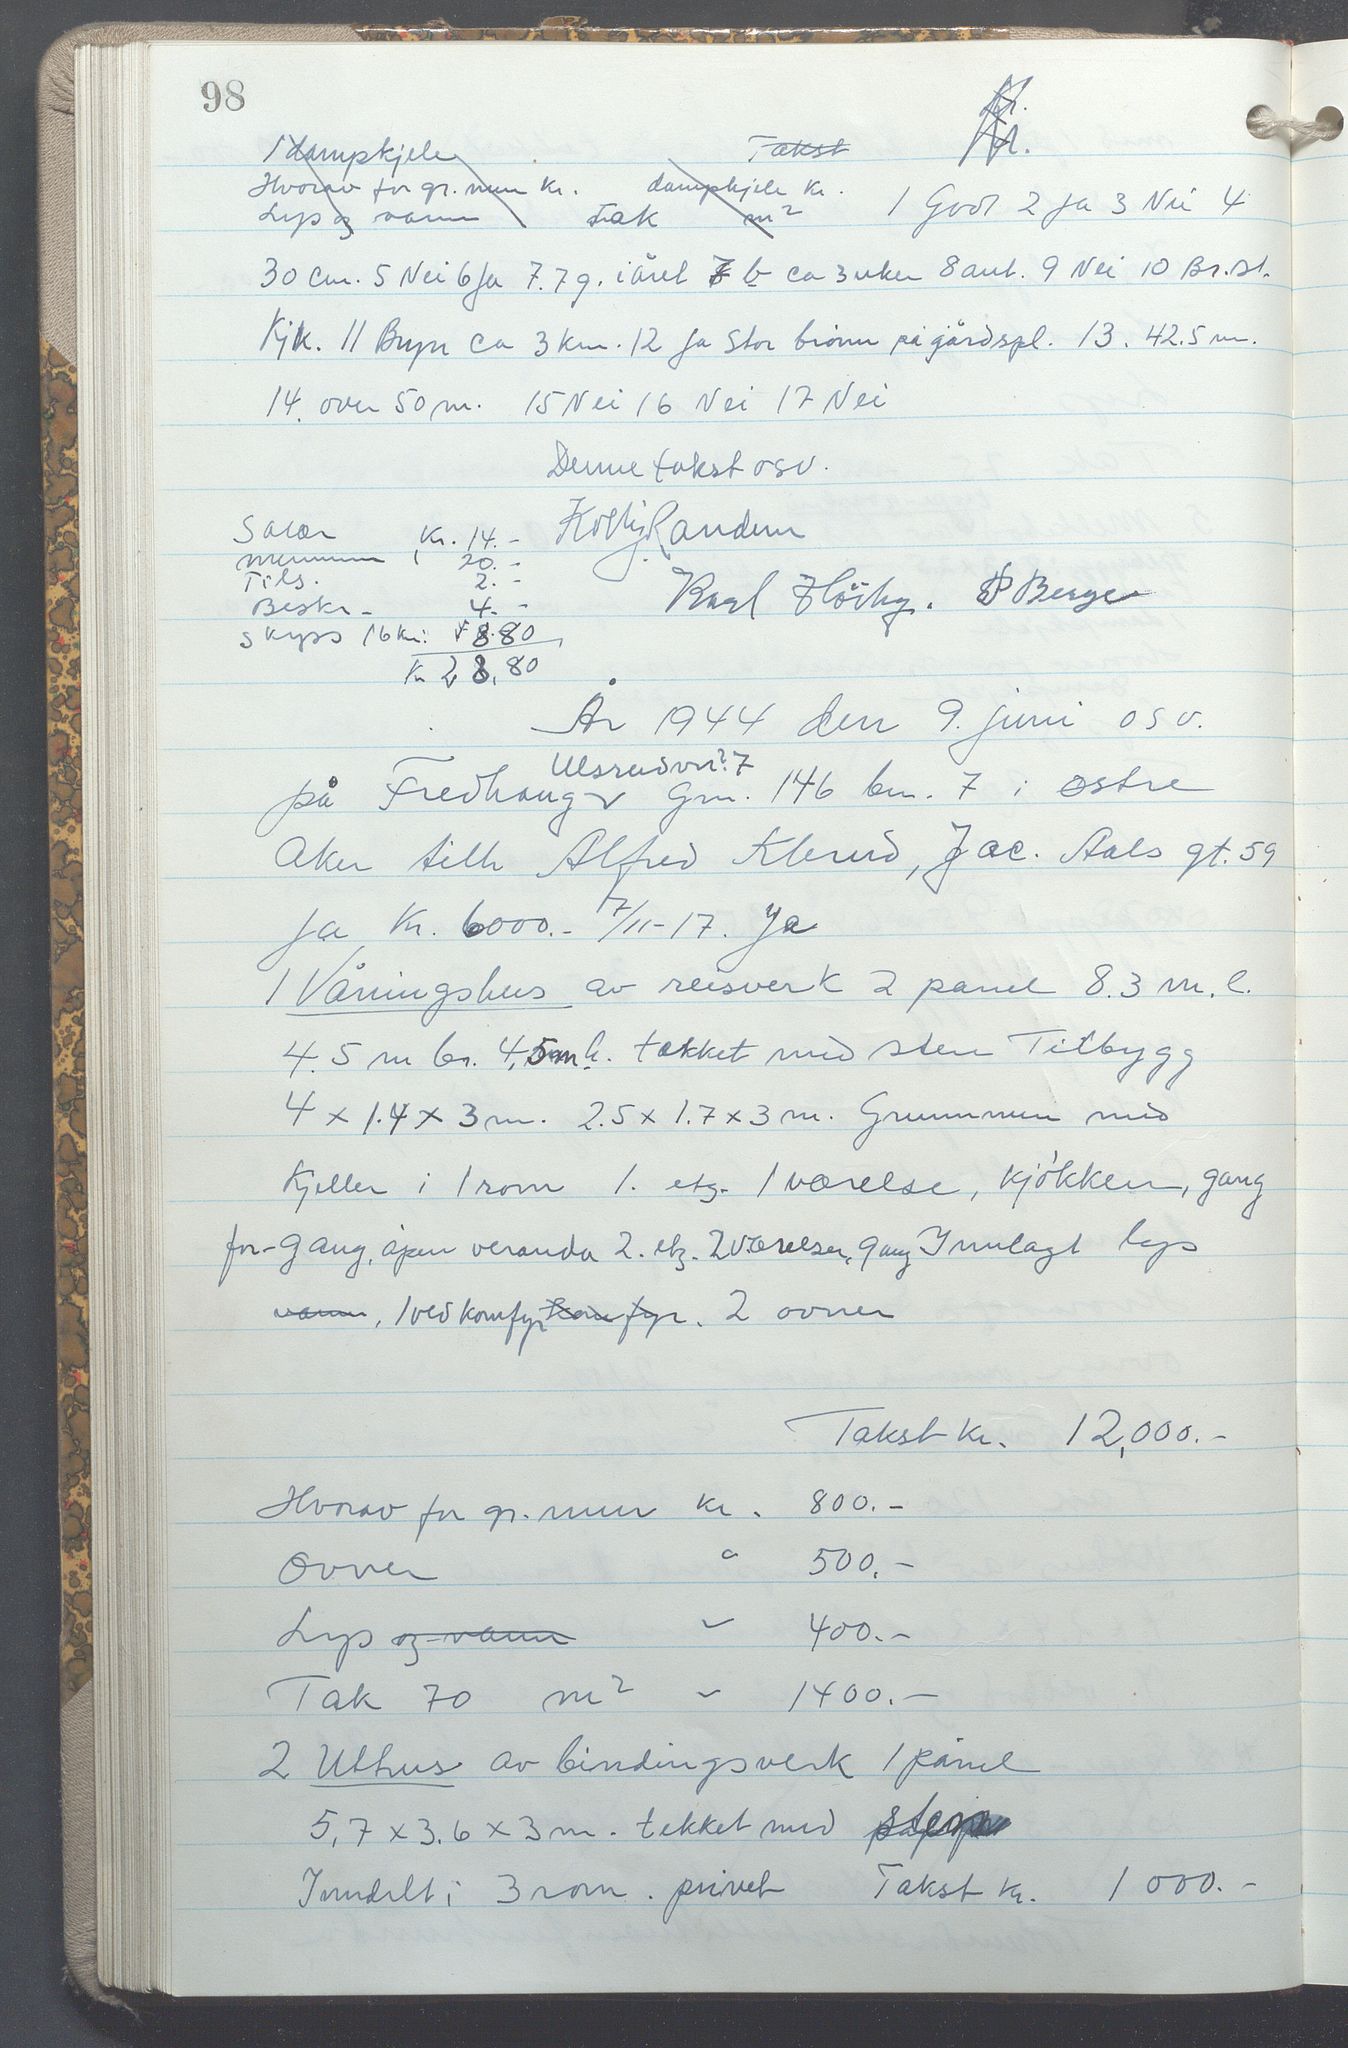 98
Kr.
1 dampkjele Takst Kr.
Hvorav for gr. mur Kr. dampkjele Kr.
Lys og vann Tak m² 1 God 2 Ja 3 Nei 4
30 cm. 5 Nei 6 Ja 7. 7 g. i året b ca 3 uker 8 ant. 9 Nei 10 Br.st.
Kjk. 11 Bryn ca 3 km. 12 Ja Stor brönn på gårdspl. 13. 42.5 m.
14. over 50 m. 15 Nei 16 Nei 17 Nei
Denne takst osv.
Salær Kr. 14.-
20.-
Tils. 2.-
Beskr- 4.-
Skyss 16 km: 8.80
Kr 8,80
Randem
Karl Höiby. Berge
År 1944 den 9. juni osv.
Ulsrudvn? 7
på Fredhaug v Gm. 146 bn. 7 i østre
Aker tilh Alfred Klerud, Jac. Aals gt. 59
Ja Kr. 6000.- 7/11-17. Ja
1 Våningshus av reisverk 2 panel 8.3 m. l.
4.5 m br. 4,5 m h. tekket med sten Tilbygg
4 x 1.4 x 3 m. 2.5 x 1.7 x 3 m. Grunnmur med
Kjeller i 1 rom 1. etg. 1 værelse, kjökken, gang
for-gang, åpen veranda 2. etg. 2 værelser, gang Innlagt lys
vann, 1 ved komfyr komfyr. 2 ovner
Takst kr. 12,000.-
Hvorav for gr. mur kr. 800.-
Ovner " 500.-
Lys og vann " 400.-
Tak 70 m² " 1400.-
2 Uthus av bindingsverk 1 panel
5,7 x 3.6 x 3 m. tekket med
Inndelt i 3 rom. privet Takst kr. 1 000.-